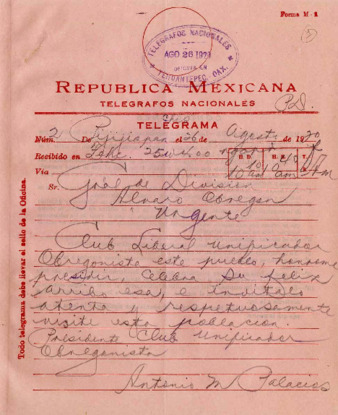 Forma M-1
(5)
TELEGRAFOS NACIONALES
AGO 26 1920
TEHUANTEPEC, OAX.
REPUBLICA MEXICANA
TELEGRAFOS NACIONALES
P.D.
TELEGRAMA
Chis
Núm. 2 De Pijijiapan 26 Agosto de 1920
Recibido en
H. D. H. T.
Vía
Sr. Gral de División
Alvaro Obregon
Urgente
Club Liberal unificador
Obregonista este pueblo, honrome
presidir, celebra su feliz
arribo esa, e invitolo
atenta y respetuosamente
visite esta población.
Presidente Club unificador
Obregonista
Antonio M Palacios
Todo telegrama debe llevar el sello de la Oficina.